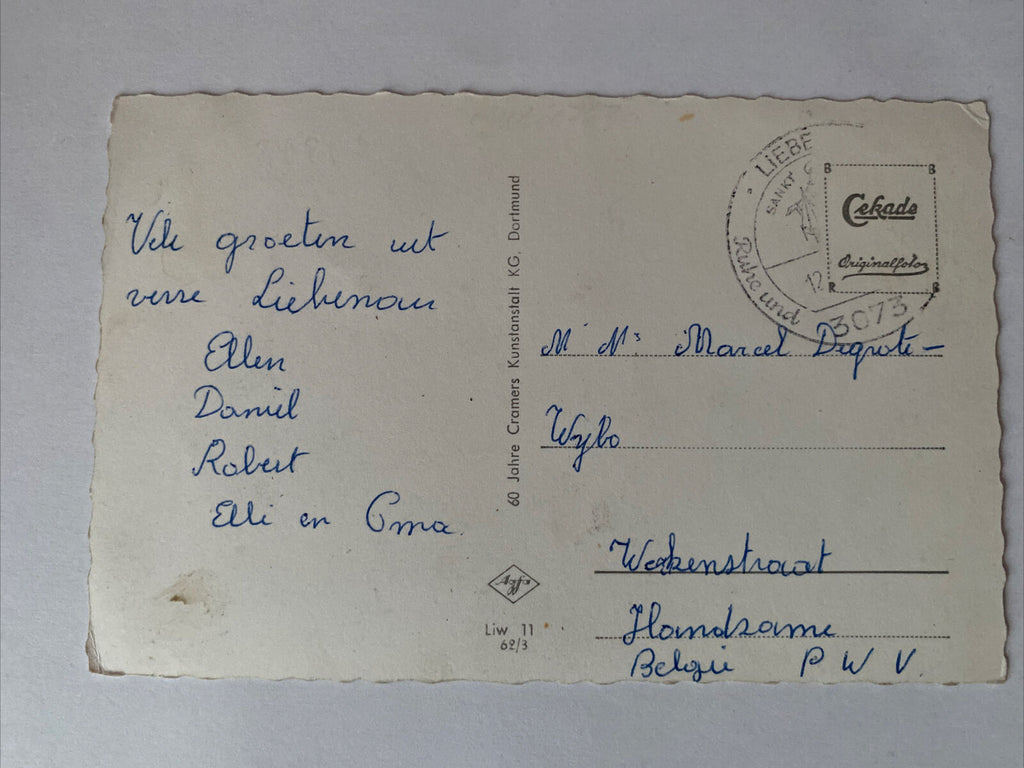 Vele groeten uit
verre Liebenau
Ellen
Daniël
Robert
Elli en Oma
60 Jahre Cramers Kunstanstalt KG, Dortmund
Agfa
Liw 11
62/3
LIEBE
SANKT
Ruhe und
12
3073
B B
Cekade
Originalfoto
R R
M Mr Marcel Degrote-
Wybo
Werkenstraat
Handzame
België P W V.